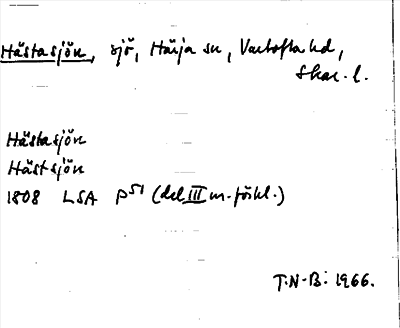 Hästasjön, sjö, Härja sn, Vartofta hd,
Skar. l.
Hästasjön
Hästsjön
1808 LSA P51 (del III m. förkl.)
T.N-B: 1966.